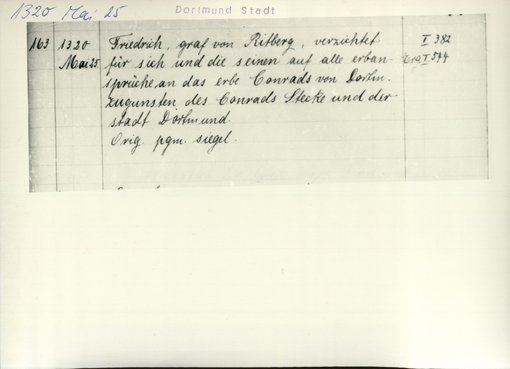 1320 Mai 25 Dortmund Stadt
163 1320 Friedrich, graf von Ritberg, verzichtet II 382
Mai 25 für sich und die seinen auf alle erban- Erg. I 594
sprüche, an das erbe Conrads von Dortm.
zugunsten des Conrads Stecke und der
stadt Dortmund.
Orig. pgm. siegel.